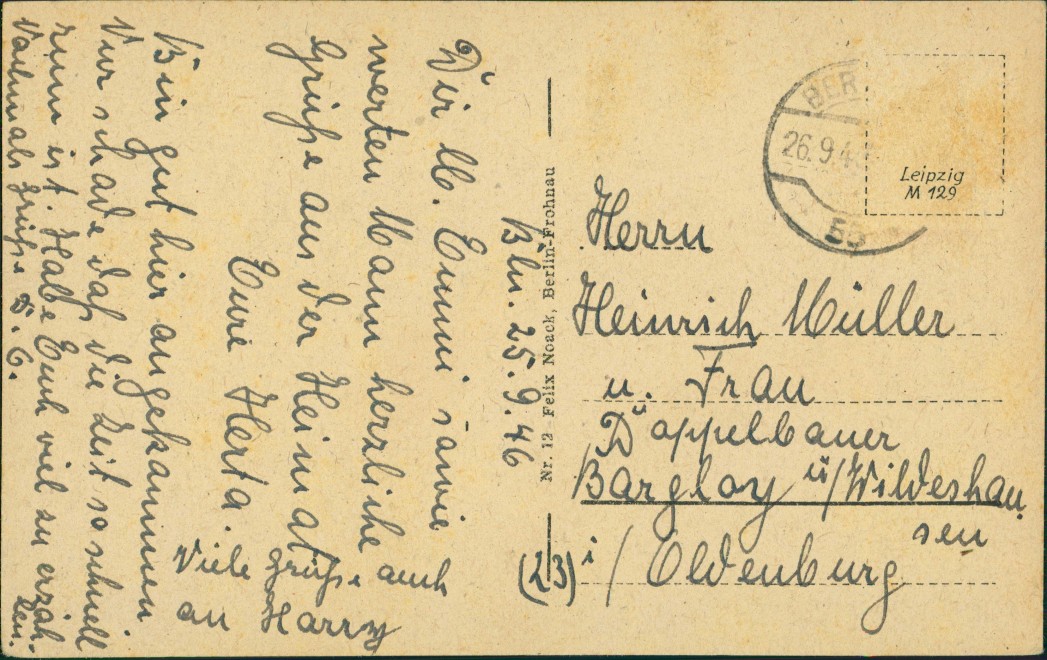 Bln. 25.9.46
Dir lb. Emmi sowie
werten Mann herzliche
Grüße aus der Heimat
Eure Herta.
Viele Grüße auch
an Harry
Bin gut hier angekommen
Nur schade daß die Zeit so schnell
rum ist. Habe Euch viel zu erzäh-
len.
Nochmals Grüße D. O.
Nr. 12 Felix Noack, Berlin-Frohnau
BER
26.9.4
55
Leipzig
M 129
Herrn
Heinrich Müller
u. Frau
Doppelbauer
Bargloy ü/Wildeshau
sen
(23) i/ Oldenburg